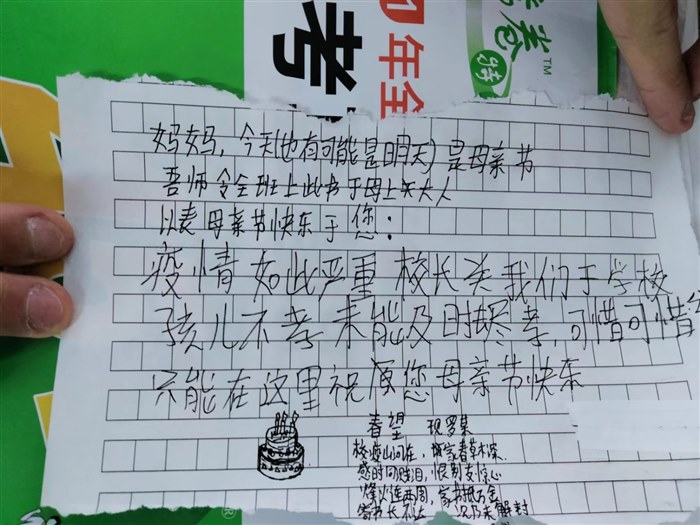 卷
特
TM
年全
考
妈妈,今天(也有可能是明天)是母亲节
吾师令全班上此书于母上矢大人
以表母亲节快东于您:
疫情如此严重校长关我们于学校
孩儿不孝未能及时尽孝,可惜可惜
只能在这里祝原您母亲节快东
春望 现 罗某
校疫山河在,国家春草木深
感时问贱泪,恨别友惊心
烽火连两周,家书抵万金
寄书长不达 况乃未解封